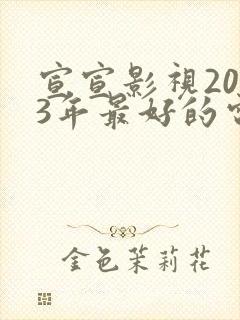 宣宣影視20
3年最好的
金色茉莉花